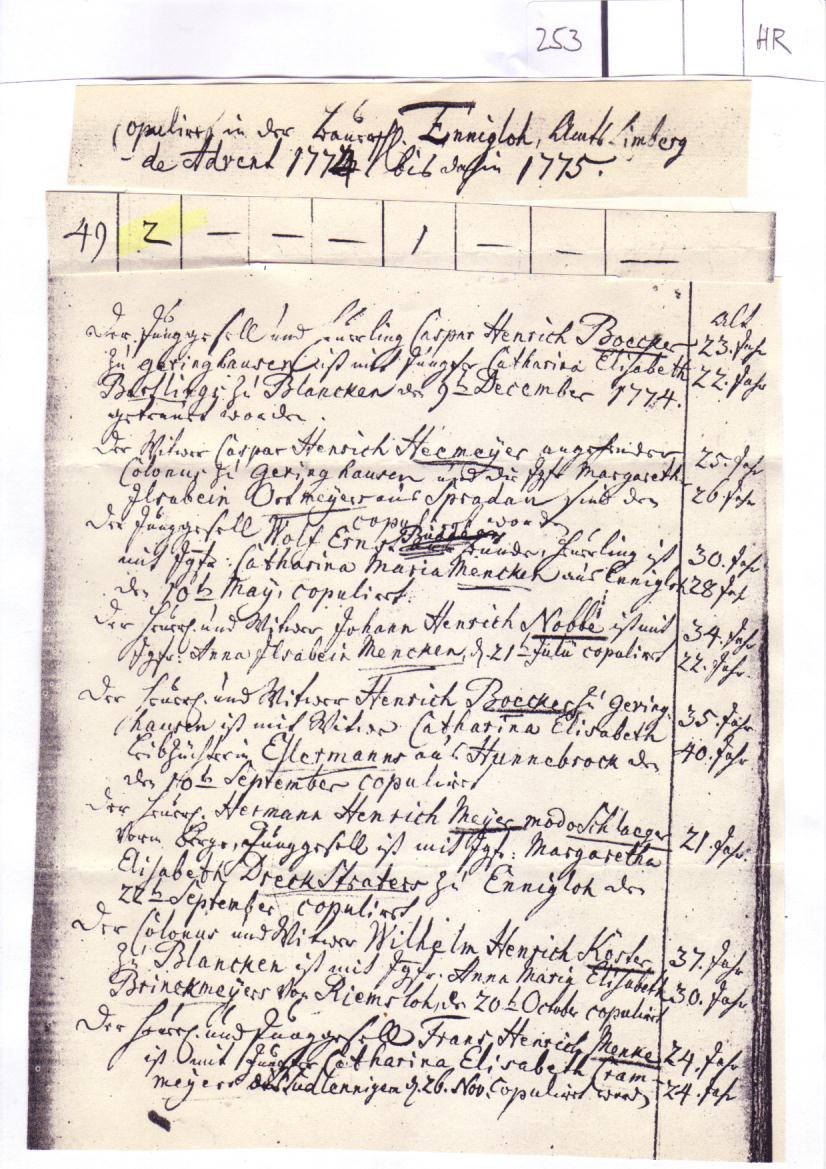 253 HR
Copuliret in der Bauersch. Ennigloh, Amts Limberg
de Advent 1774 bis dahin 1775.
49 2 — — — 1 — — —
alt
Der Junggesell und Heuerling Caspar Henrich Boecker 23. Jahr
zu Geringhausen ist mit Jungfer Catharina Elisabeth 22. Jahr
zu Blancken den 9ten December 1774.
getrauet worden.
Der Witwer Caspar Henrich angehender 25. Jahr
Colonus zu Geringhausen und die Jgfr Margareth
Ilsabein aus Spradau sind den 20 Jahr
copuliret worden
Der Junggesell Wolf Ernst Bünde, Heuerling ist 30. Jahr
mit Jgfr: Catharina Maria Mencken aus Ennigloh 28 Jahr
den 10ten May, copuliret.
Der Heuerl. und Witwer Johann Henrich Nobbe ist mit 34. Jahr
Jgfr: Anna Ilsabein Mencken, d. 21ten Julii copuliret 22. Jahr.
Der Heuerl. und Witwer Henrich Boecker zu Gering- 35. Jahr
hausen ist mit Witwe Catharina Elisabeth
Leibzüchterin Ellermanns aus Hunnebrock den 40. Jahr
den 10ten September copuliret
Der Heuerl. Hermann Henrich Meyer modo Schlaeger 21. Jahr.
vorm Berge, Junggesell ist mit Jgfr: Margaretha
Elisabeth Dreckstraters zu Ennigloh den
22ten September copuliret
Der Colonus und Witwer Wilhelm Henrich Köster 37. Jahr
zu Blancken ist mit Jgfr. Anna Maria Elisabeth
Brinckmeyers von Riemsloh, den 20ten October copuliret 30. Jahr
Der Heuerl. und Junggesell Frans Henrich Menke 24. Jahr
ist mit Jungfer Catharina Elisabeth Cram-
meyers d. 26. Nov. copuliret worden 24. Jahr